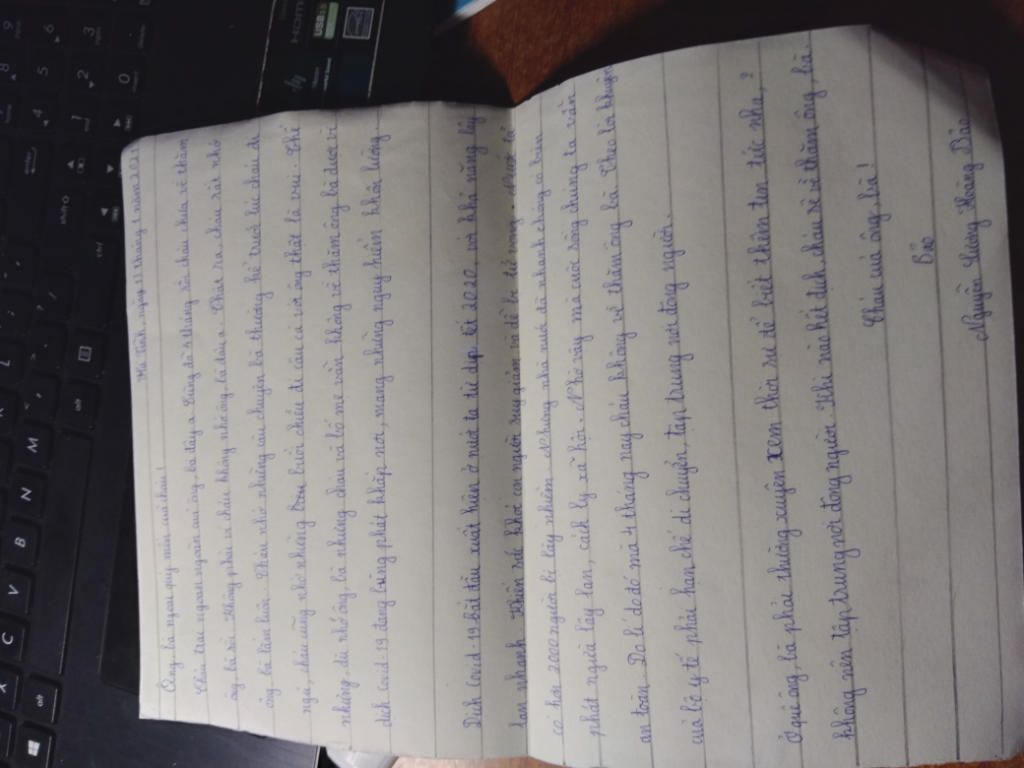 Hà Tĩnh, ngày 11 tháng 1 năm 202
Ông, bà ngoại quý mến của cháu!
Cháu trai ngoan ngoãn của ông, bà đây ạ. Cũng đã 5 tháng rồi cháu chưa về thăm
ông, bà rồi. Không phải vì cháu không nhớ ông, bà đâu ạ. Thật ra cháu rất nhớ
ông, bà lắm luôn. Cháu nhớ những câu chuyện bà thường kể trước lúc cháu đi
ngủ, cháu cũng nhớ những hôm buổi chiều đi câu cá với ông thật là vui. Thế
nhưng dù nhớ ông, bà nhưng cháu và bố mẹ vẫn không về thăm ông bà được vì
dịch Covid-19 đang bùng phát khắp nơi, mang nhiều nguy hiểm khôn lường.
Dịch Covid-19 bắt đầu xuất hiện ở nước ta từ dịp tết 2020, với khả năng lây
lan nhanh khiến sức khỏe con người suy giảm và dễ bị tử vong. Nước ta
có hơn 2000 người bị lây nhiễm. Nhưng nhà nước đã nhanh chóng có biện
pháp ngừa lây lan, cách ly xã hội. Nhờ vậy mà cuộc sống chúng ta vẫn
an toàn. Do lí do đó mà 4 tháng nay cháu không về thăm ông bà. Theo lời khuyên
của bộ y tế phải hạn chế di chuyển, tập trung nơi đông người.
Ở quê ông, bà phải thường xuyên xem thời sự để biết thêm tin tức nha,
không nên tập trung nơi đông người. Khi nào hết dịch cháu sẽ về thăm ông, bà.
Cháu của ông, bà!
Bảo
Nguyễn Lương Hoàng Bảo